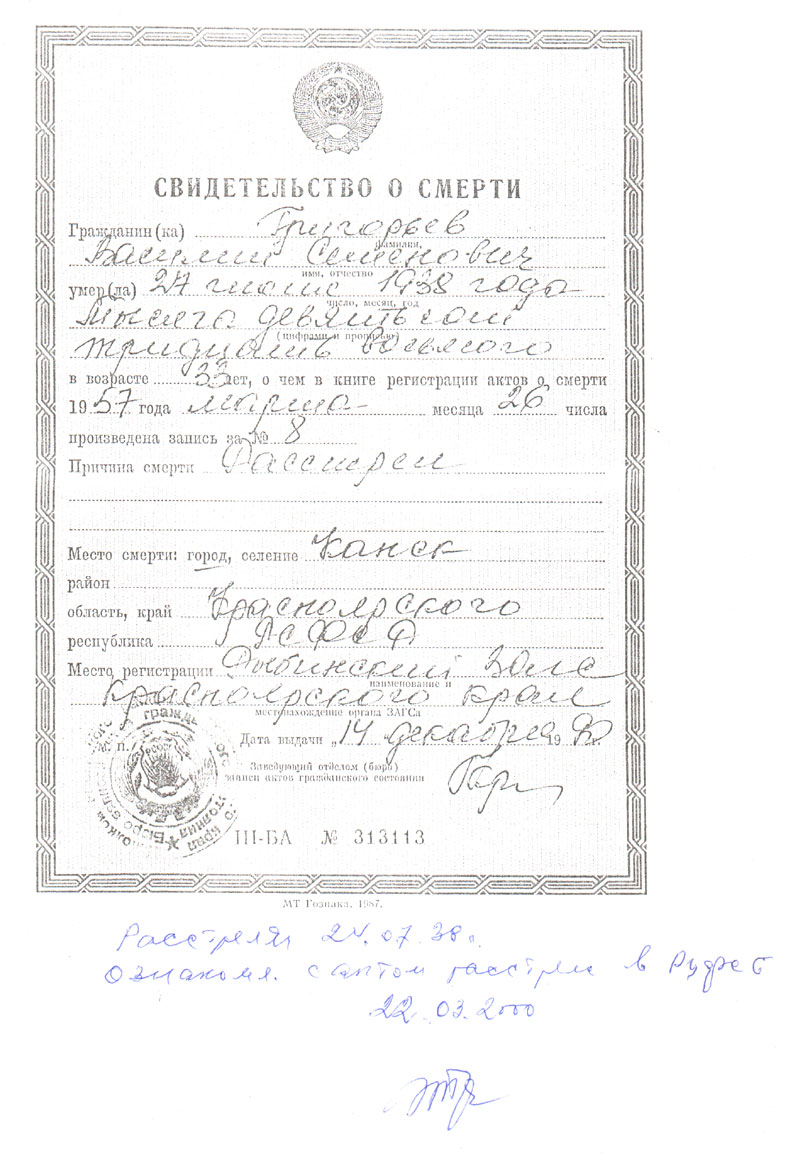 СВИДЕТЕЛЬСТВО О СМЕРТИ
Гражданин(ка) Григорьев
фамилия,
Василий Семенович
имя, отчество
умер(ла) 1938 года
число, месяц, год
тысяча девятьсот
(цифрами и прописью)
тридцать восьмого
в возрасте 33 лет, о чем в книге регистрации актов о смерти
1957 года марта месяца 26 числа
произведена запись за № 8
Причина смерти Расстрел
Место смерти: город, селение Канск
район
область, край Красноярского
республика РСФСР
Место регистрации Рыбинский Загс
наименование и
Красноярского края
местонахождение органа ЗАГСа
М. П.
Дата выдачи „14 декабря 1990
Заведующий отделом (бюро)
записи актов гражданского состояния
III-БА № 313113
МТ Гознака. 1987.
Расстрелян 07.38г.
Ознаком. с актом расстрела в
22.03.2000